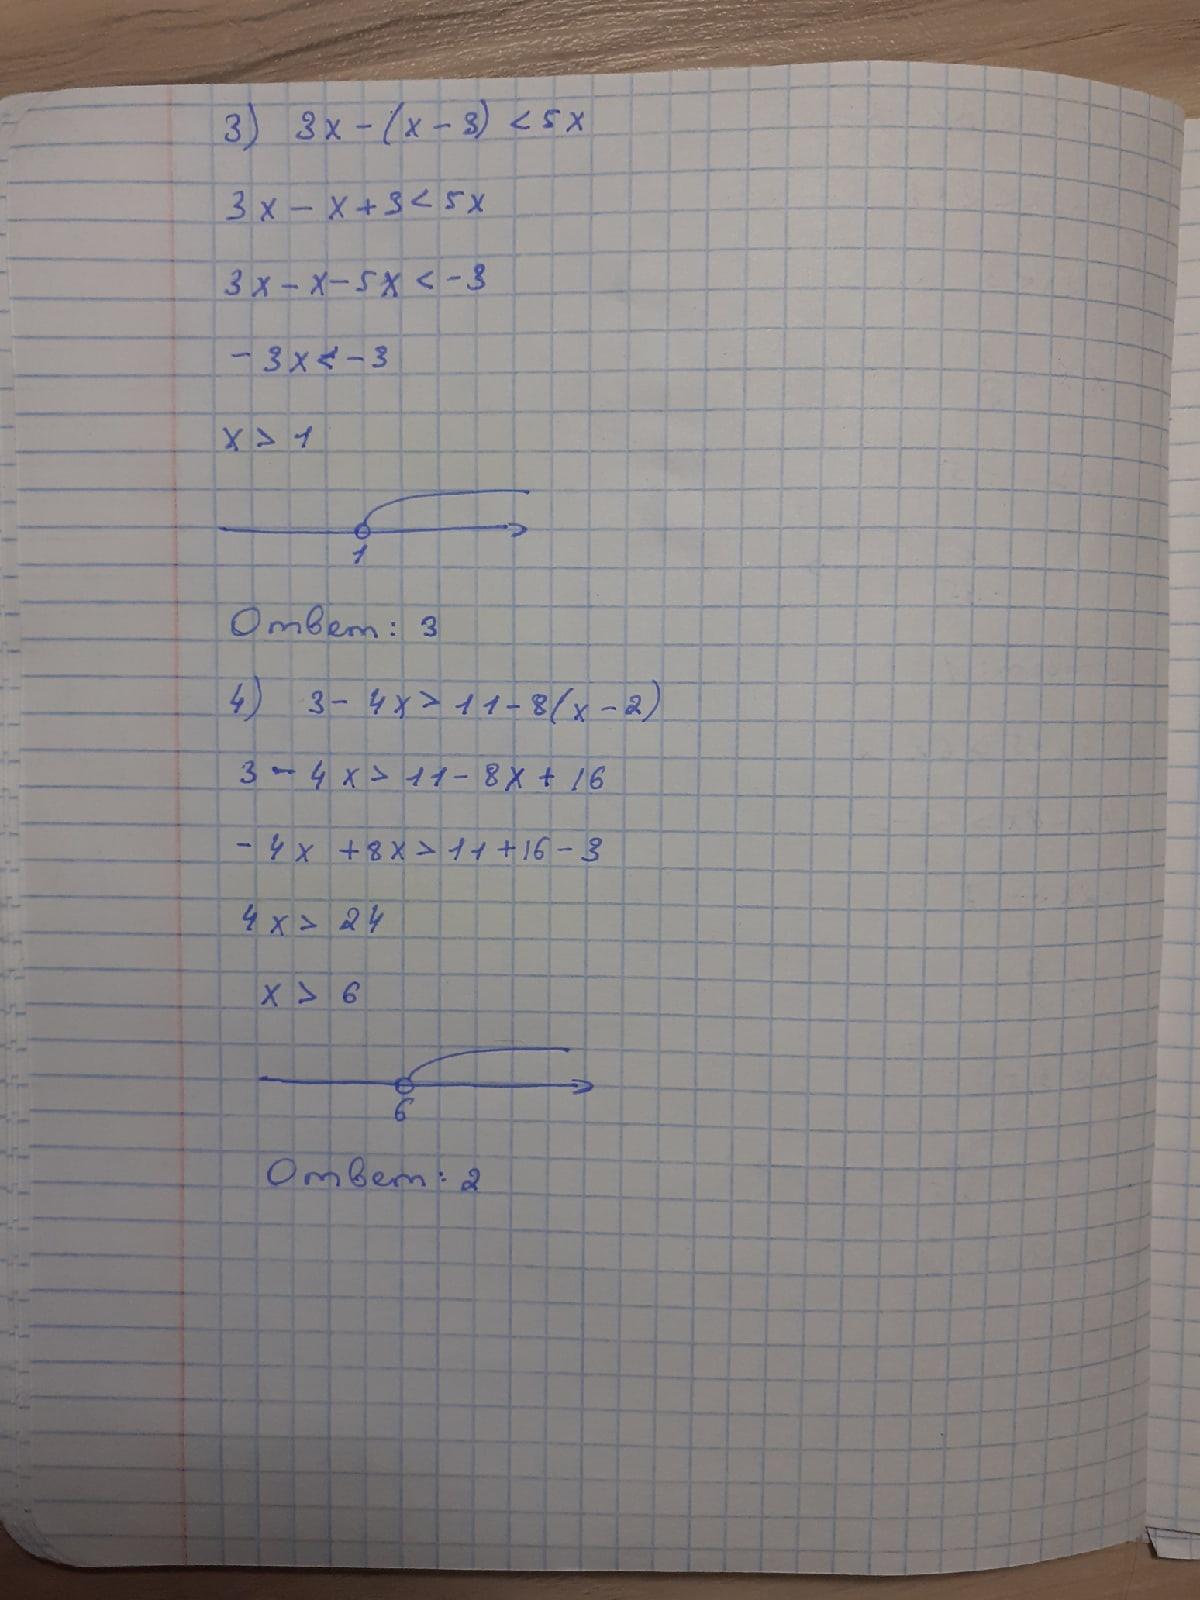 3) 3x - (x - 3) < 5x
3x - x + 3 < 5x
3x - x - 5x < -3
- 3x < - 3
x > 1
1
Ответ: 3
4) 3 - 4x > 11 - 8(x - 2)
3 - 4x > 11 - 8x + 16
- 4x + 8x > 11 + 16 - 3
4x > 24
x > 6
6
Ответ: 2